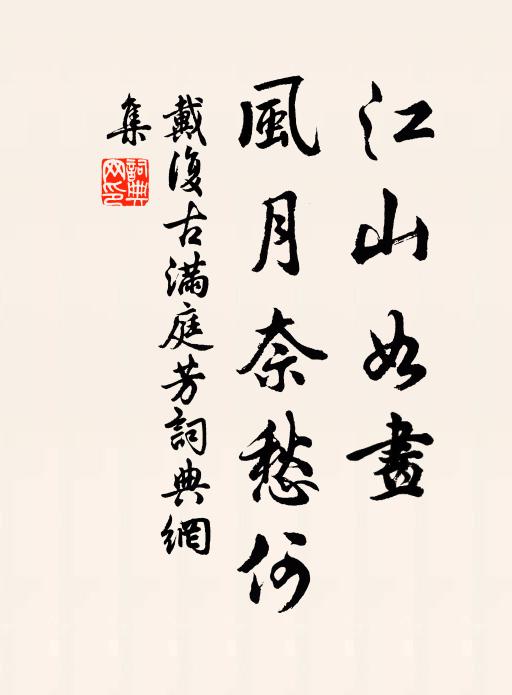 江山如畫
風月奈愁何
戴復古滿庭芳詞典網
集
詞典網印